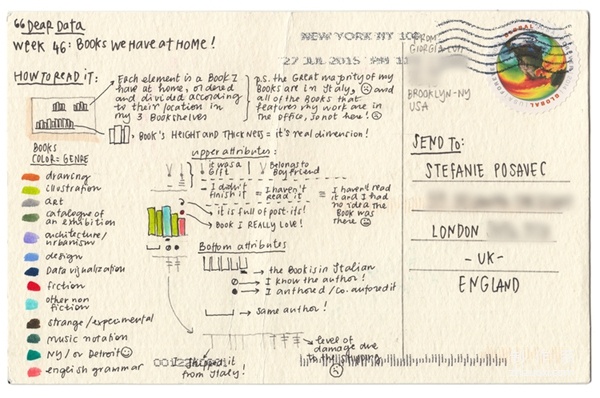 "Dear Data
WEEK 46: BOOKS WE HAVE AT HOME!
HOW TO READ IT:
Each element is a Book I
have at home, ordered
and divided according
to their location in
my 3 Bookshelves
p.s. the GREAT majority of my
BOOKS are in Italy, and
all of the BOOKS that
feature my work are in
the office, so not here!
BOOK'S HEIGHT and THICKNESS = it's real dimension!
BOOKS
COLOR = GENRE
drawing
illustration
art
catalogue of
an exhibition
architecture/
urbanism
design
Data visualization
fiction
other non
fiction
strange/experimental
music notation
NY/ or Detroit
english grammar
upper attributes:
it was a
Gift
Belongs to
Boyfriend
I didn't
finish it
= I haven't
read it
= I haven't read
it and I had
no idea the
Book was
there
it is full of post-its!
BOOK I REALLY LOVE!
Bottom attributes
the Book is in Italian
I know the author!
I authored / co. autored it
Same author!
level of
damage due
to the shipping
I shipped it
from Italy!
NEW YORK NY 100
27 JUL 2015 PM 11
FROM
GIORGIA LUPI
BROOKLYN - NY
USA
GLOBAL
FOREVER
SEND TO:
STEFANIE POSAVEC
LONDON
- UK -
ENGLAND